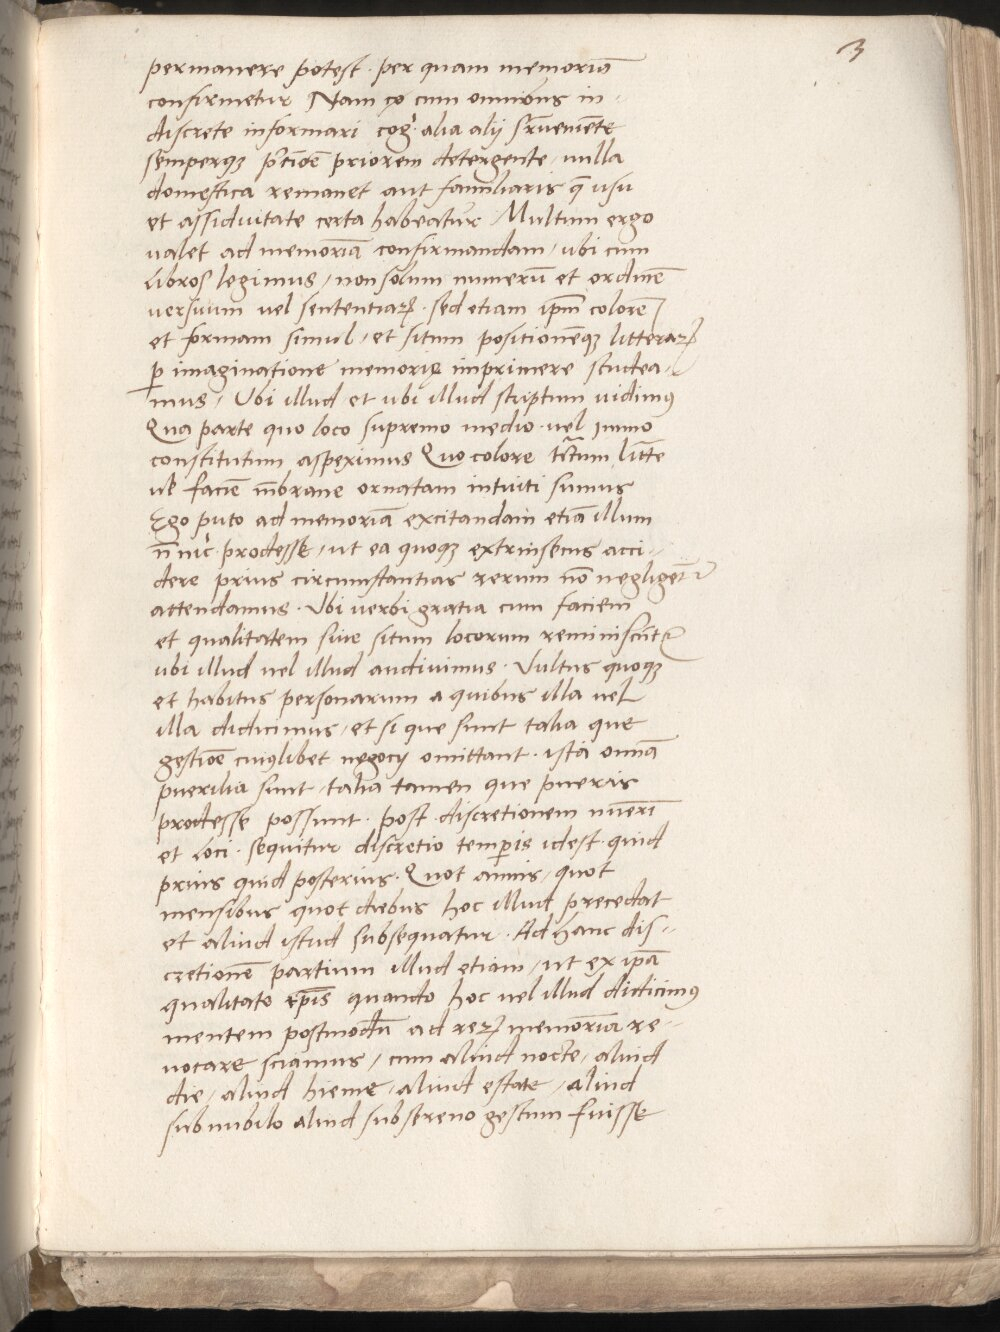 3
permanere potest · per quam memoriā
confirmetur Nam cō cum omnibus in-
discrete informari coḡ· alia alij sr̄veniēte
semperqꝫ p̄tiōē priorem detergente, nulla
domestica remanet aut familiaris q̄ usu
et assiduitate certa habeatur Multum ergo
valet ad memoriā confirmandam, ubi cum
Libros legimus, non solum numerū et ordinē
versuum vel sententiaꝝ · sed etiam ipm̄ colorē
et formam simul, et situm positionēqꝫ litteraꝝ
ꝑ imaginatione memorię imprimere studea-
mus, Ubi illud et ubi illud scriptum vidimꝰ
Qua parte quo loco supremo medio · vel immo
constitutum aspeximus Quo colore tr̄ctum litt̄e
ul̄ faciē m̄brane ornatam intuiti sumus
Ego puto ad memoriā excitandam etiā illum
n̄ nic̄· prodesse, ut ea quoqꝫ extrinsecus acci-
dere prius circumstantias rerum nō negligēt̄
attendamus · Ubi verbi gratia cum faciem
et qualitatem sive situm locorum reminiscūt̄
ubi illud vel illud audivimus · Vultus quoqꝫ
et habitus personarum a quibus illa vel
illa didicimus, et si que sunt talia que
gestiōē cuiꝰlibet negocij omittant · ista omīa
puerilia sunt, talia tamen que pueris
prodesse possunt · post discretionem nūeri
et Loci · sequitur discretio temꝑis idest · quid
prius quid posterius · Quot annis, quot
mensibus quot diebus hoc illud precedat
et aliud istud subsequatur · Ad hanc dis-
cretionē partium illud etiam, ut ex ipā
qualitate tp̄is quando hoc vel illud didicimꝰ
mentem postmodū ad reꝝ memoriā re-
vocare sciamus, cum aliud nocte, aliud
die, aliud hieme, aliud estate, aliud
sub nubilo aliud sub sereno gestum fuisse